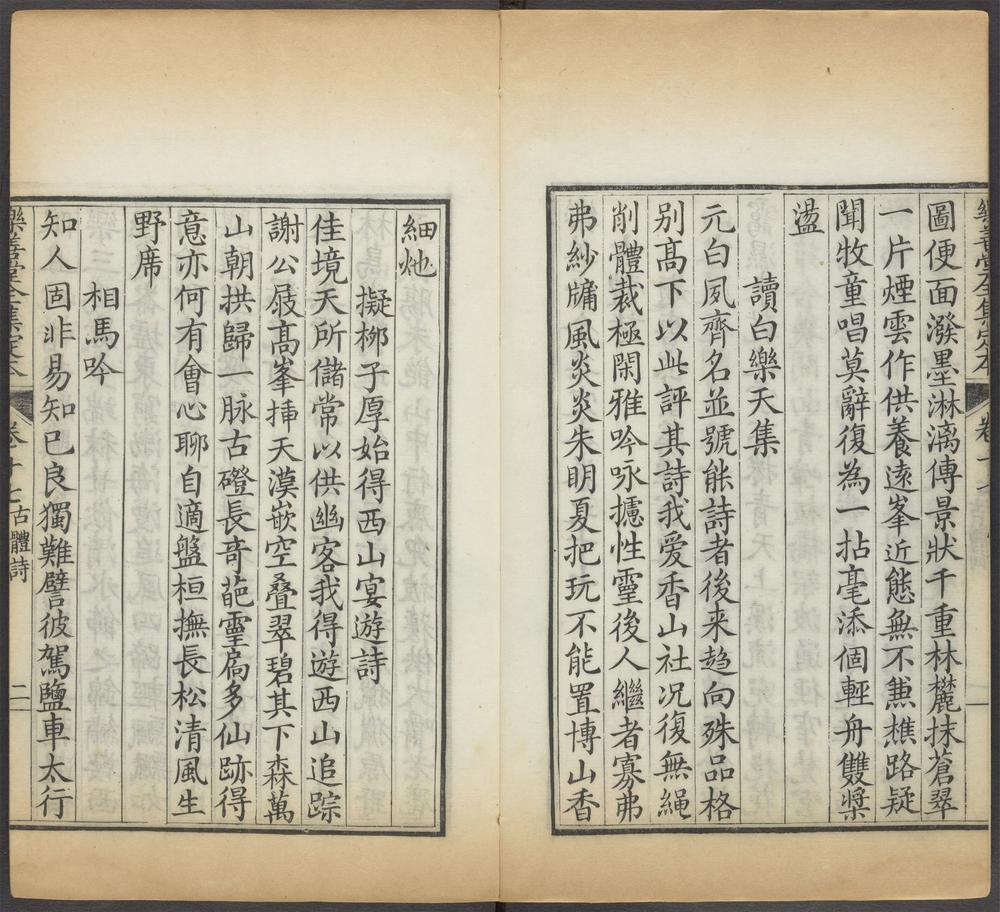 圖便面潑墨淋漓傳景狀千重林麓抹蒼翠
一片煙雲作供養遠峯近態無不兼樵路疑
聞牧童唱莫辭復為一拈毫添個輕舟雙槳
盪
讀白樂天集
元白夙齊名並號能詩者後来趋向殊品格
别髙下以此評其詩我爱香山社况復無繩
削體裁極閑雅吟咏攄性靈後人繼者寡弗
弗紗牗風炎炎朱明夏把玩不能置博山香
細灺
擬柳子厚始得西山宴遊詩
佳境天所儲常以供幽客我得遊西山追踪
謝公屐髙峯揷天漠嵌空叠翠碧其下森萬
山朝拱歸一脉古磴長竒葩靈扃多仙跡得
意亦何有會心聊自適盤桓撫長松清風生
野席
相馬吟
知人固非易知已良獨難譬彼駕鹽車太行
樂善堂全集定本
卷十七古體詩
二